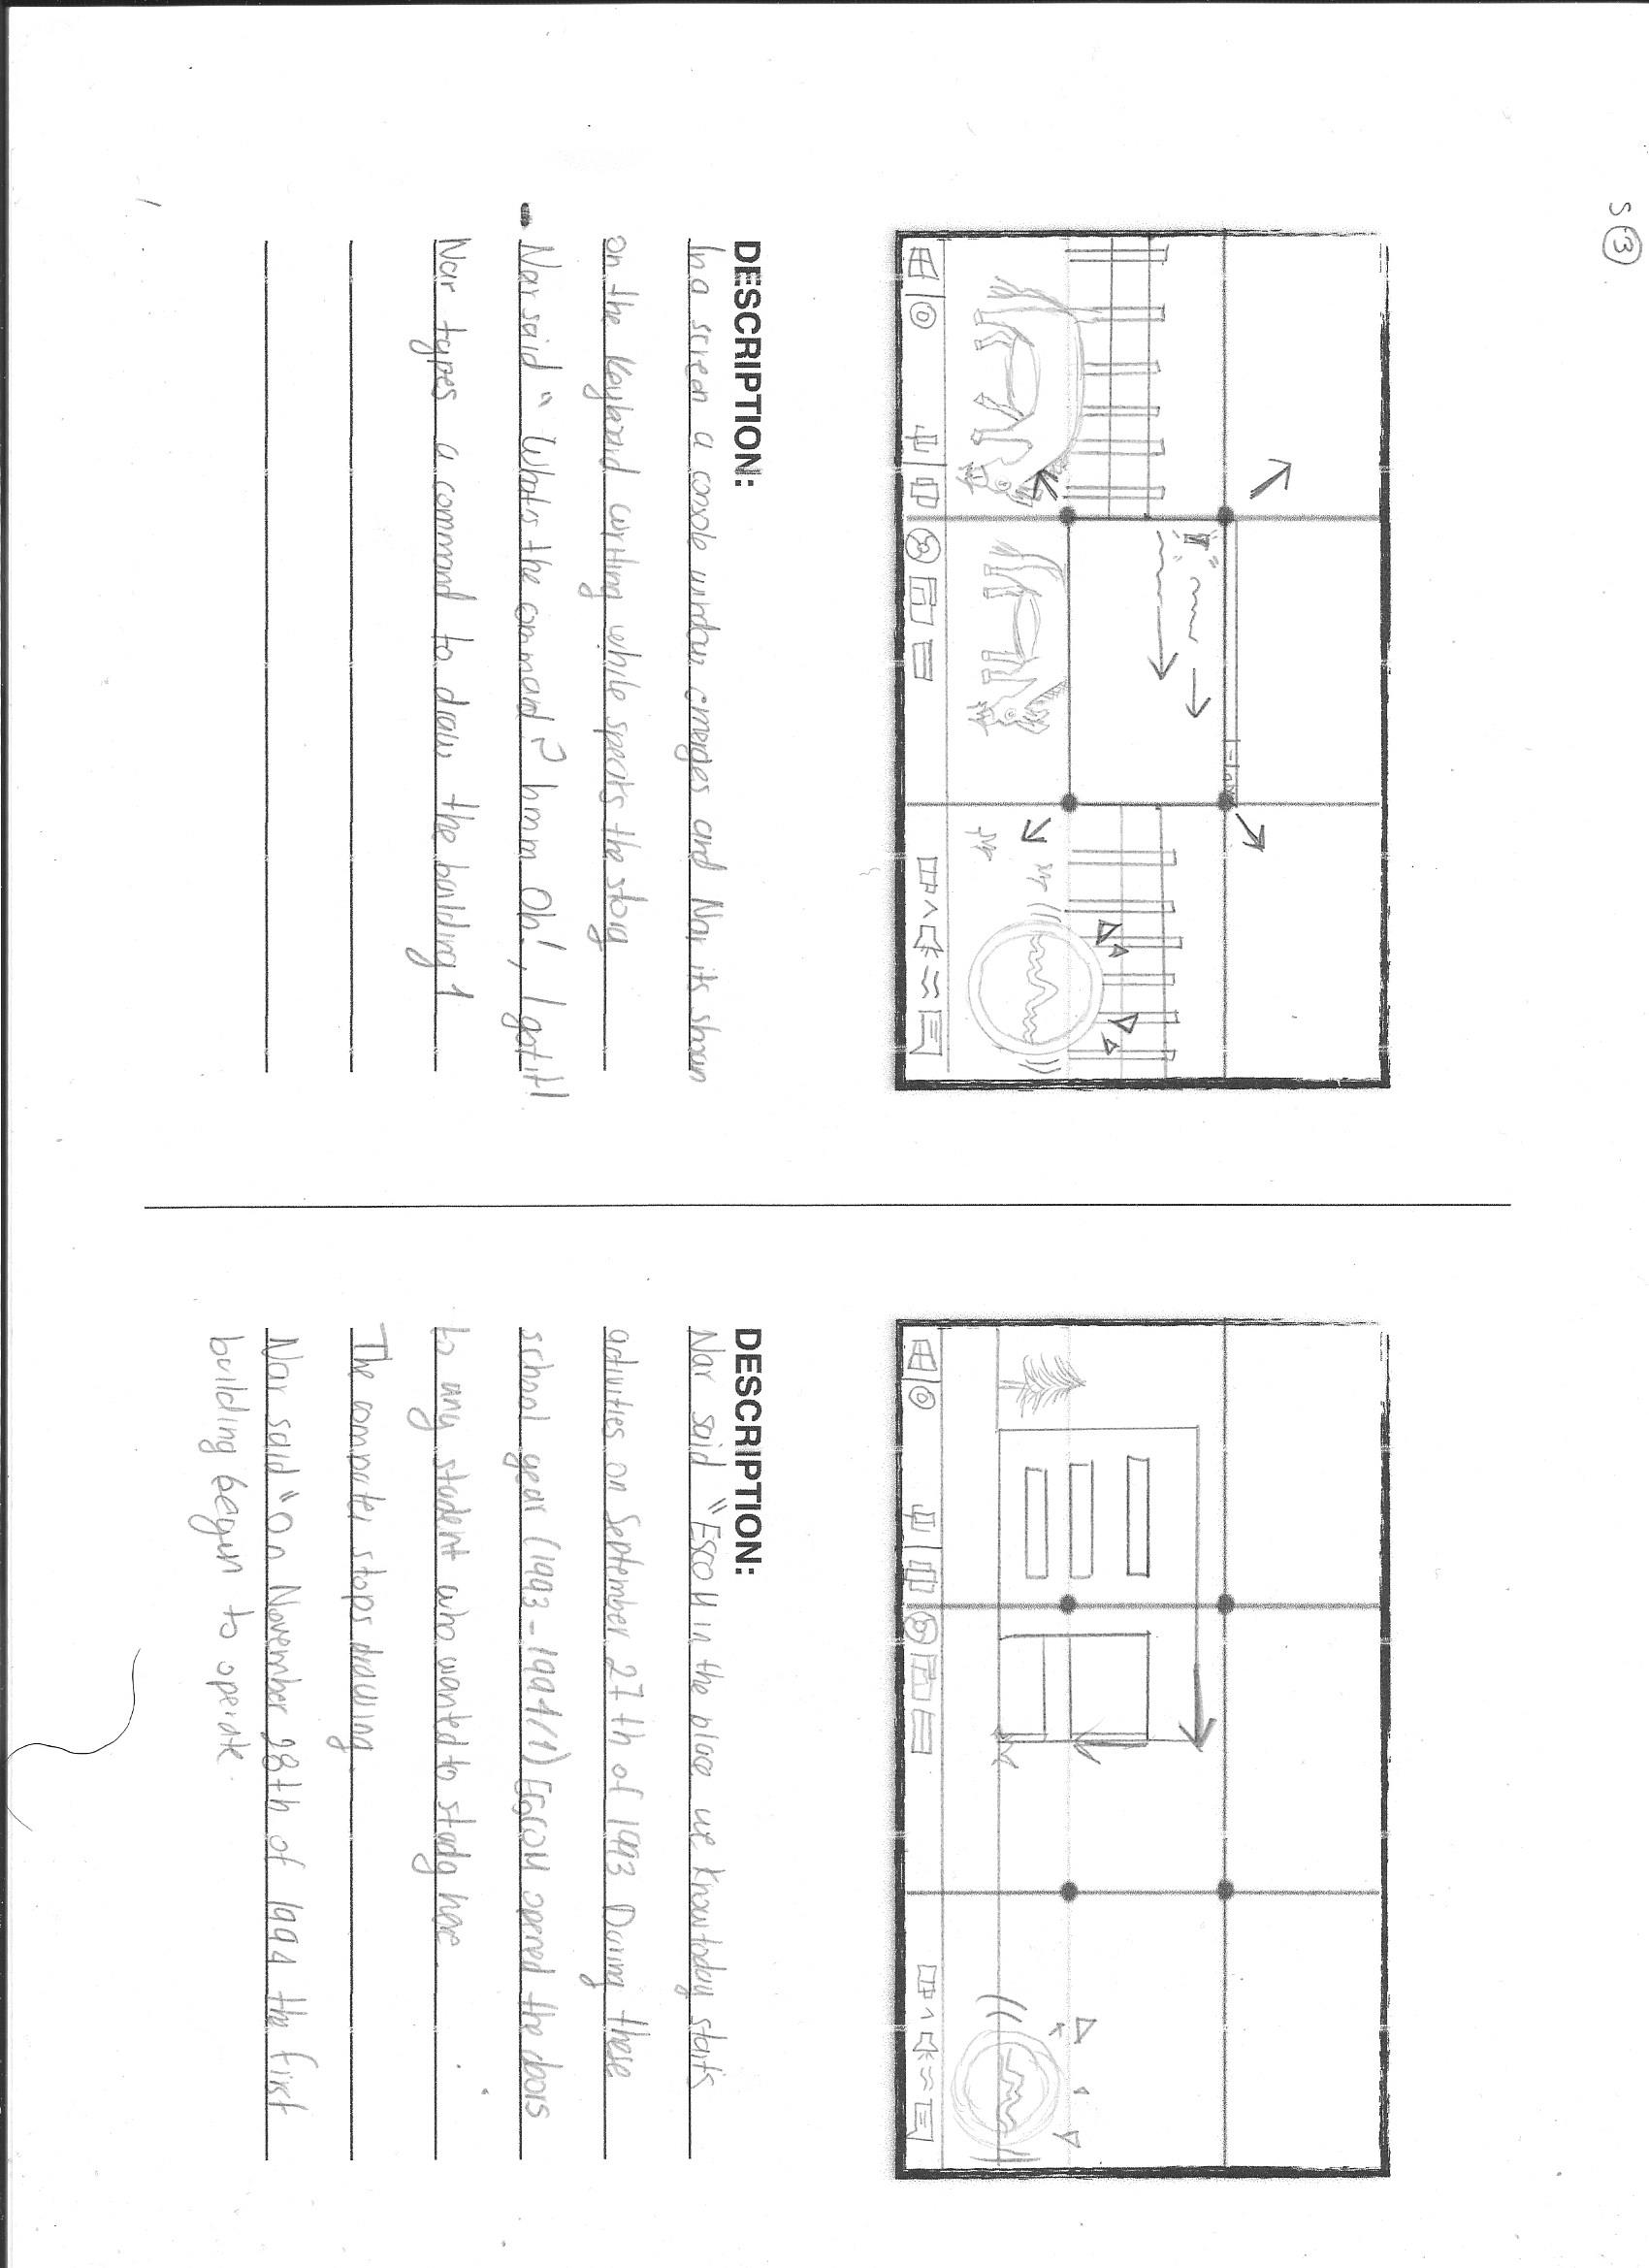 S ③
DESCRIPTION:
In a screen a console window emerges and Nar its shown
on the keyboard writing while speaks the story
Nar said " What's the command? hmm Oh!, I got it!
Nar types a command to draw the building 1
DESCRIPTION:
Nar said "Escom in the place we know today starts
activities on September 27th of 1993 During these
school year (1993-1994/1) ESCOM opened the doors
to any student who wanted to study here
The computer stops drawing
Nar said " On November 28th of 1994 the first
building begun to operate